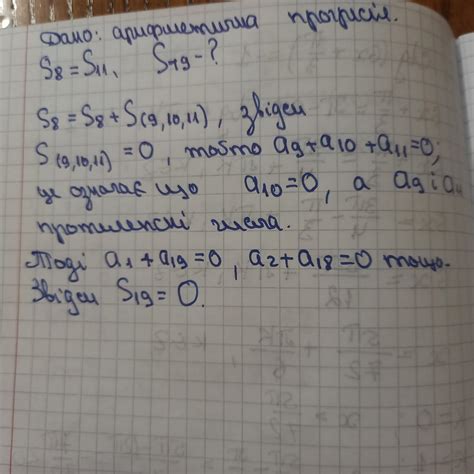 Дано: арифметична прогресія.
S8=S11, S19-?
S8=S8+S(9,10,11), звідси
S(9,10,11)=0, тобто a9+a10+a11=0;
це означає що a10=0, а a9 і a11
протилежні числа.
Тоді a1+a19=0, a2+a18=0 тощо.
Звідси S19=0.